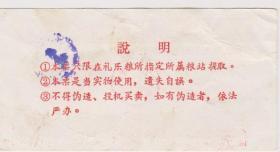 說明
①本票只限在礼乐粮所指定所属粮站提取。
②本票是当实物使用，遗失自误。
③不得伪造、投机买卖，如有伪造者，依法
严办。